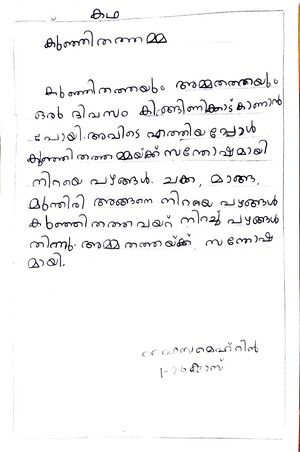 കഥ
കുഞ്ഞിതത്തമ്മ
കുഞ്ഞിതത്തയും അമ്മതത്തയും
ഒരു ദിവസം കിങ്ങിണിക്കാട് കാണാൻ
പോയി. അവിടെ എത്തിയപ്പോൾ
കുഞ്ഞിതത്തമ്മയ്ക്ക് സന്തോഷമായി
നിറയെ പഴങ്ങൾ. ചക്ക, മാങ്ങ,
മുന്തിരി അങ്ങനെ നിറയെ പഴങ്ങൾ
കുഞ്ഞിതത്ത വയറ് നിറച്ച് പഴങ്ങൾ
തിന്നു. അമ്മതത്തയ്ക്ക് സന്തോഷ
മായി.
മെഹ്റിൻ
ക്ലാസ്